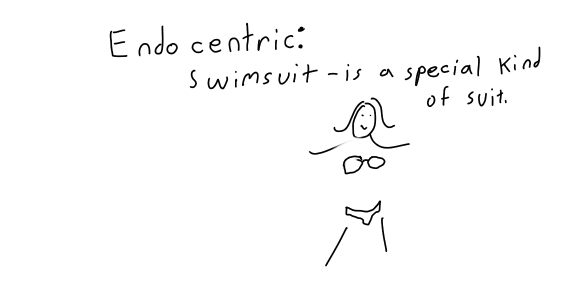 Endocentric:
swimsuit - is a special kind
of suit.